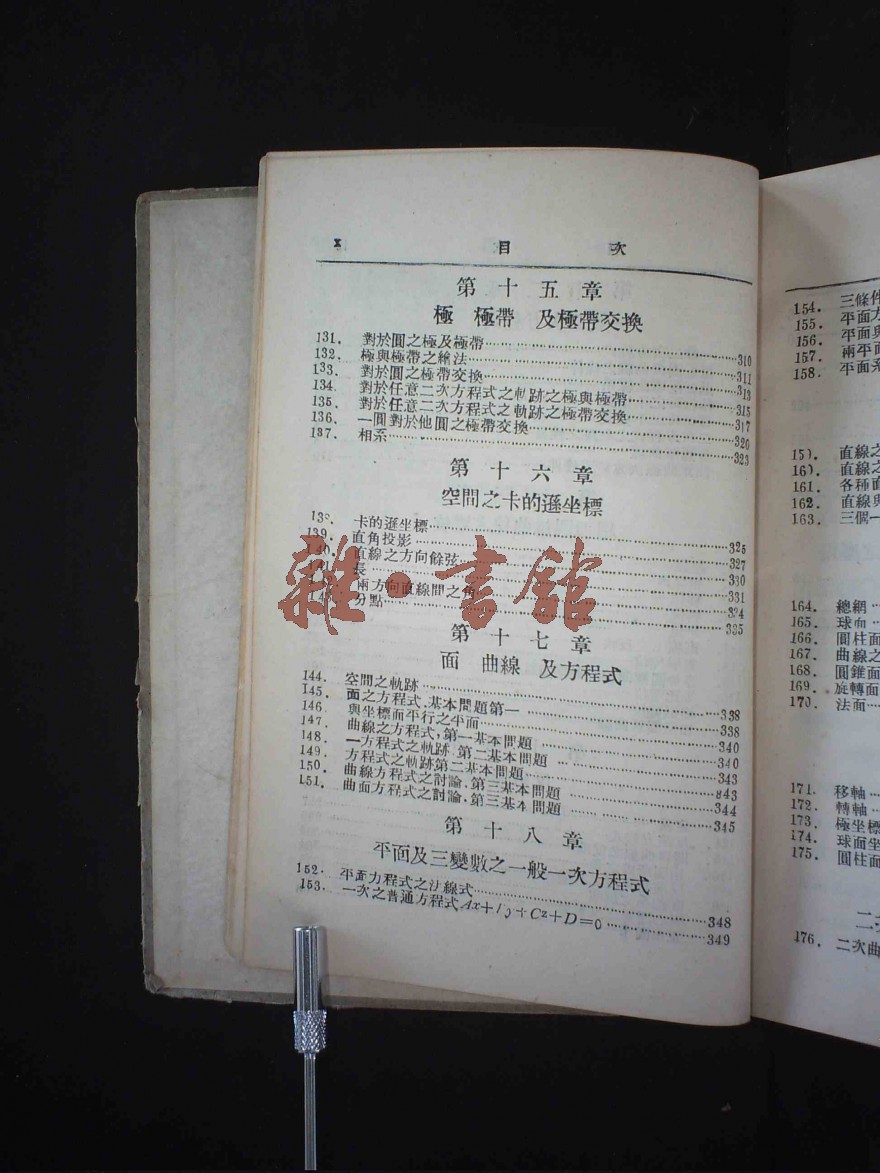 X 目 次
第十五章
極 極帶 及極帶交換
131. 對於圓之極及極帶 310
132. 極與極帶之繪法 311
133. 對於圓之極帶交換 313
134. 對於任意二次方程式之軌跡之極與極帶 315
135. 對於任意二次方程式之軌跡之極帶交換 317
136. 一圓對於他圓之極帶交換 320
137. 相系 323
第十六章
空間之卡的遜坐標
138. 卡的遜坐標 325
139. 直角投影 327
140. 直線之方向餘弦 330
長 331
兩方向直線間之角 334
分點 335
雜·書館
第十七章
面 曲線 及方程式
144. 空間之軌跡 338
145. 面之方程式.基本問題第一 338
146. 與坐標面平行之平面 340
147. 曲線之方程式,第一基本問題 340
148. 一方程式之軌跡.第二基本問題 343
149. 方程式之軌跡第二基本問題 343
150. 曲線方程式之討論.第三基本問題 344
151. 曲面方程式之討論.第三基本問題 345
第十八章
平面及三變數之一般一次方程式
152. 平面方程式之法線式 348
153. 一次之普通方程式Ax+By+Cz+D=0 349
154. 三條件
155. 平面方
156. 平面與
157. 兩平面
158. 平面系
159. 直線之
160. 直線之
161. 各種直
162. 直線與
163. 三個一
164. 總網
165. 球面
166. 圓柱面
167. 曲線之
168. 圓錐面
169. 旋轉面
170. 法面
171. 移軸
172. 轉軸
173. 極坐標
174. 球面坐
175. 圓柱面
176. 二次曲